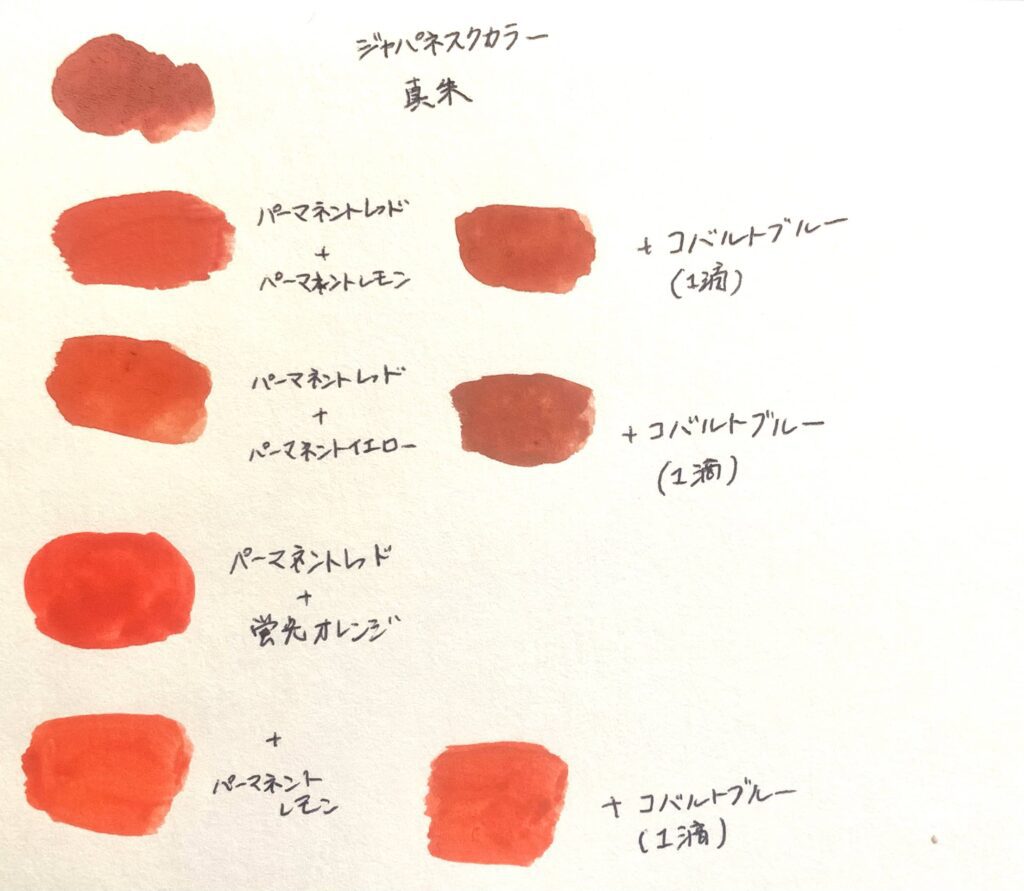 ジャパネスクカラー
真朱
パーマネントレッド
+
パーマネントレモン
+ コバルトブルー
(1滴)
パーマネントレッド
+
パーマネントイエロー
+ コバルトブルー
(1滴)
パーマネントレッド
+
蛍光オレンジ
+
パーマネント
レモン
+ コバルトブルー
(1滴)